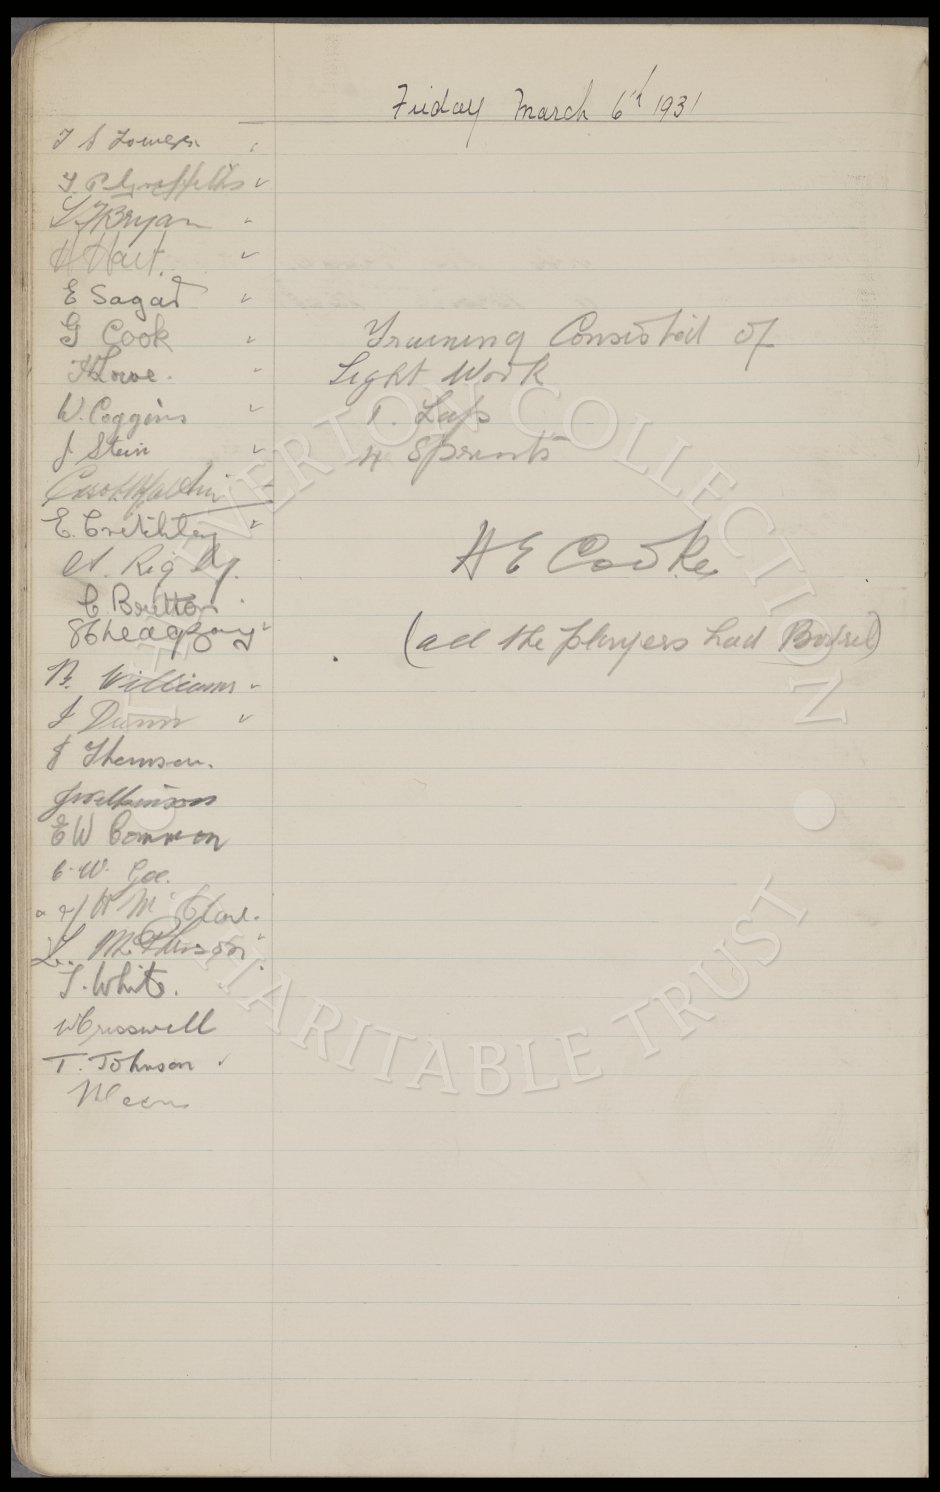 Friday March 6th 1931
T P Griffiths
L. F Bryan
H Hart.
E Sagar
G Cook
H Lowe.
W. Coggins
J Stein
E. Critchley
A. Rigby.
C Britton
B. Williams
J Dunn
J Thomson.
J Wilkinson
E W Common
C. W. Gee.
H Mc Clure.
L. McPherson
T. White.
W Cresswell
T. Johnson
Training Consisted of
Light Work
Laps
4 Sprints
H E Cooke
(all the players had Bovril)
EVERTON COLLECTION
CHARITABLE TRUST